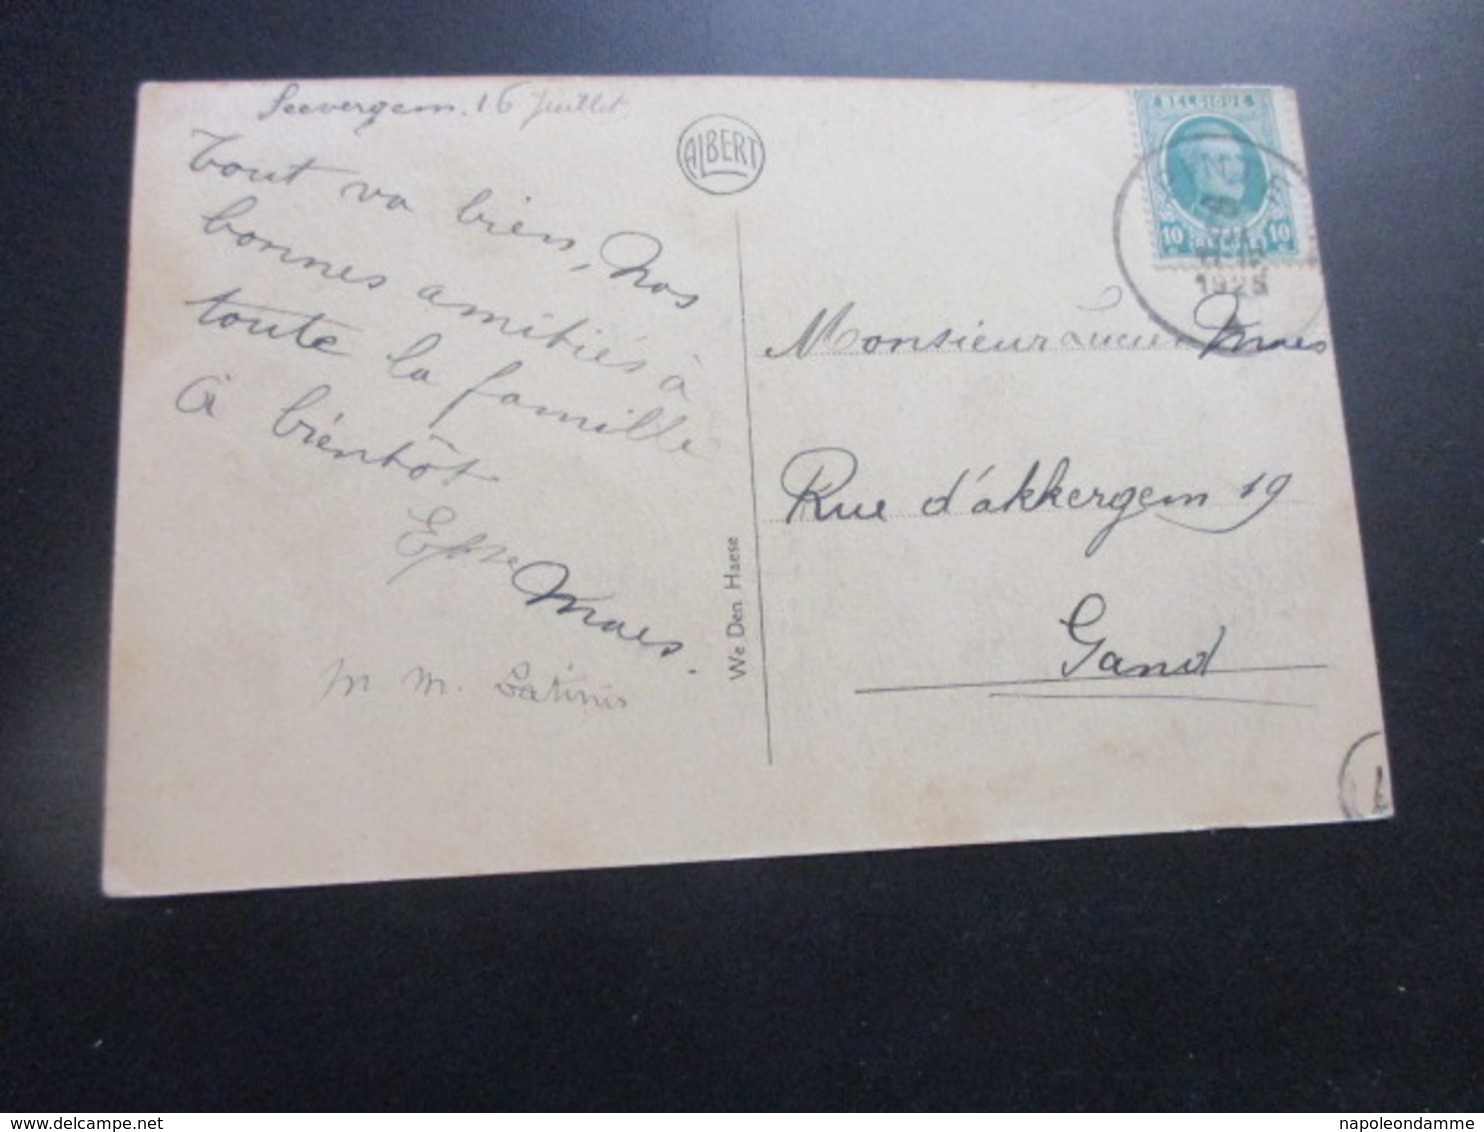 Seevergem. 16 Juillet.
Tout va bien, Nos
bonnes amitiés à
toute la famille
à bientôt
Maes.
M M.
ALBERT
We Den Haese
BELGIQUE
10 BELGIE 10
1925
Monsieur Lucien Maes
Rue d'akkergem 19
Gand
napoleondamme